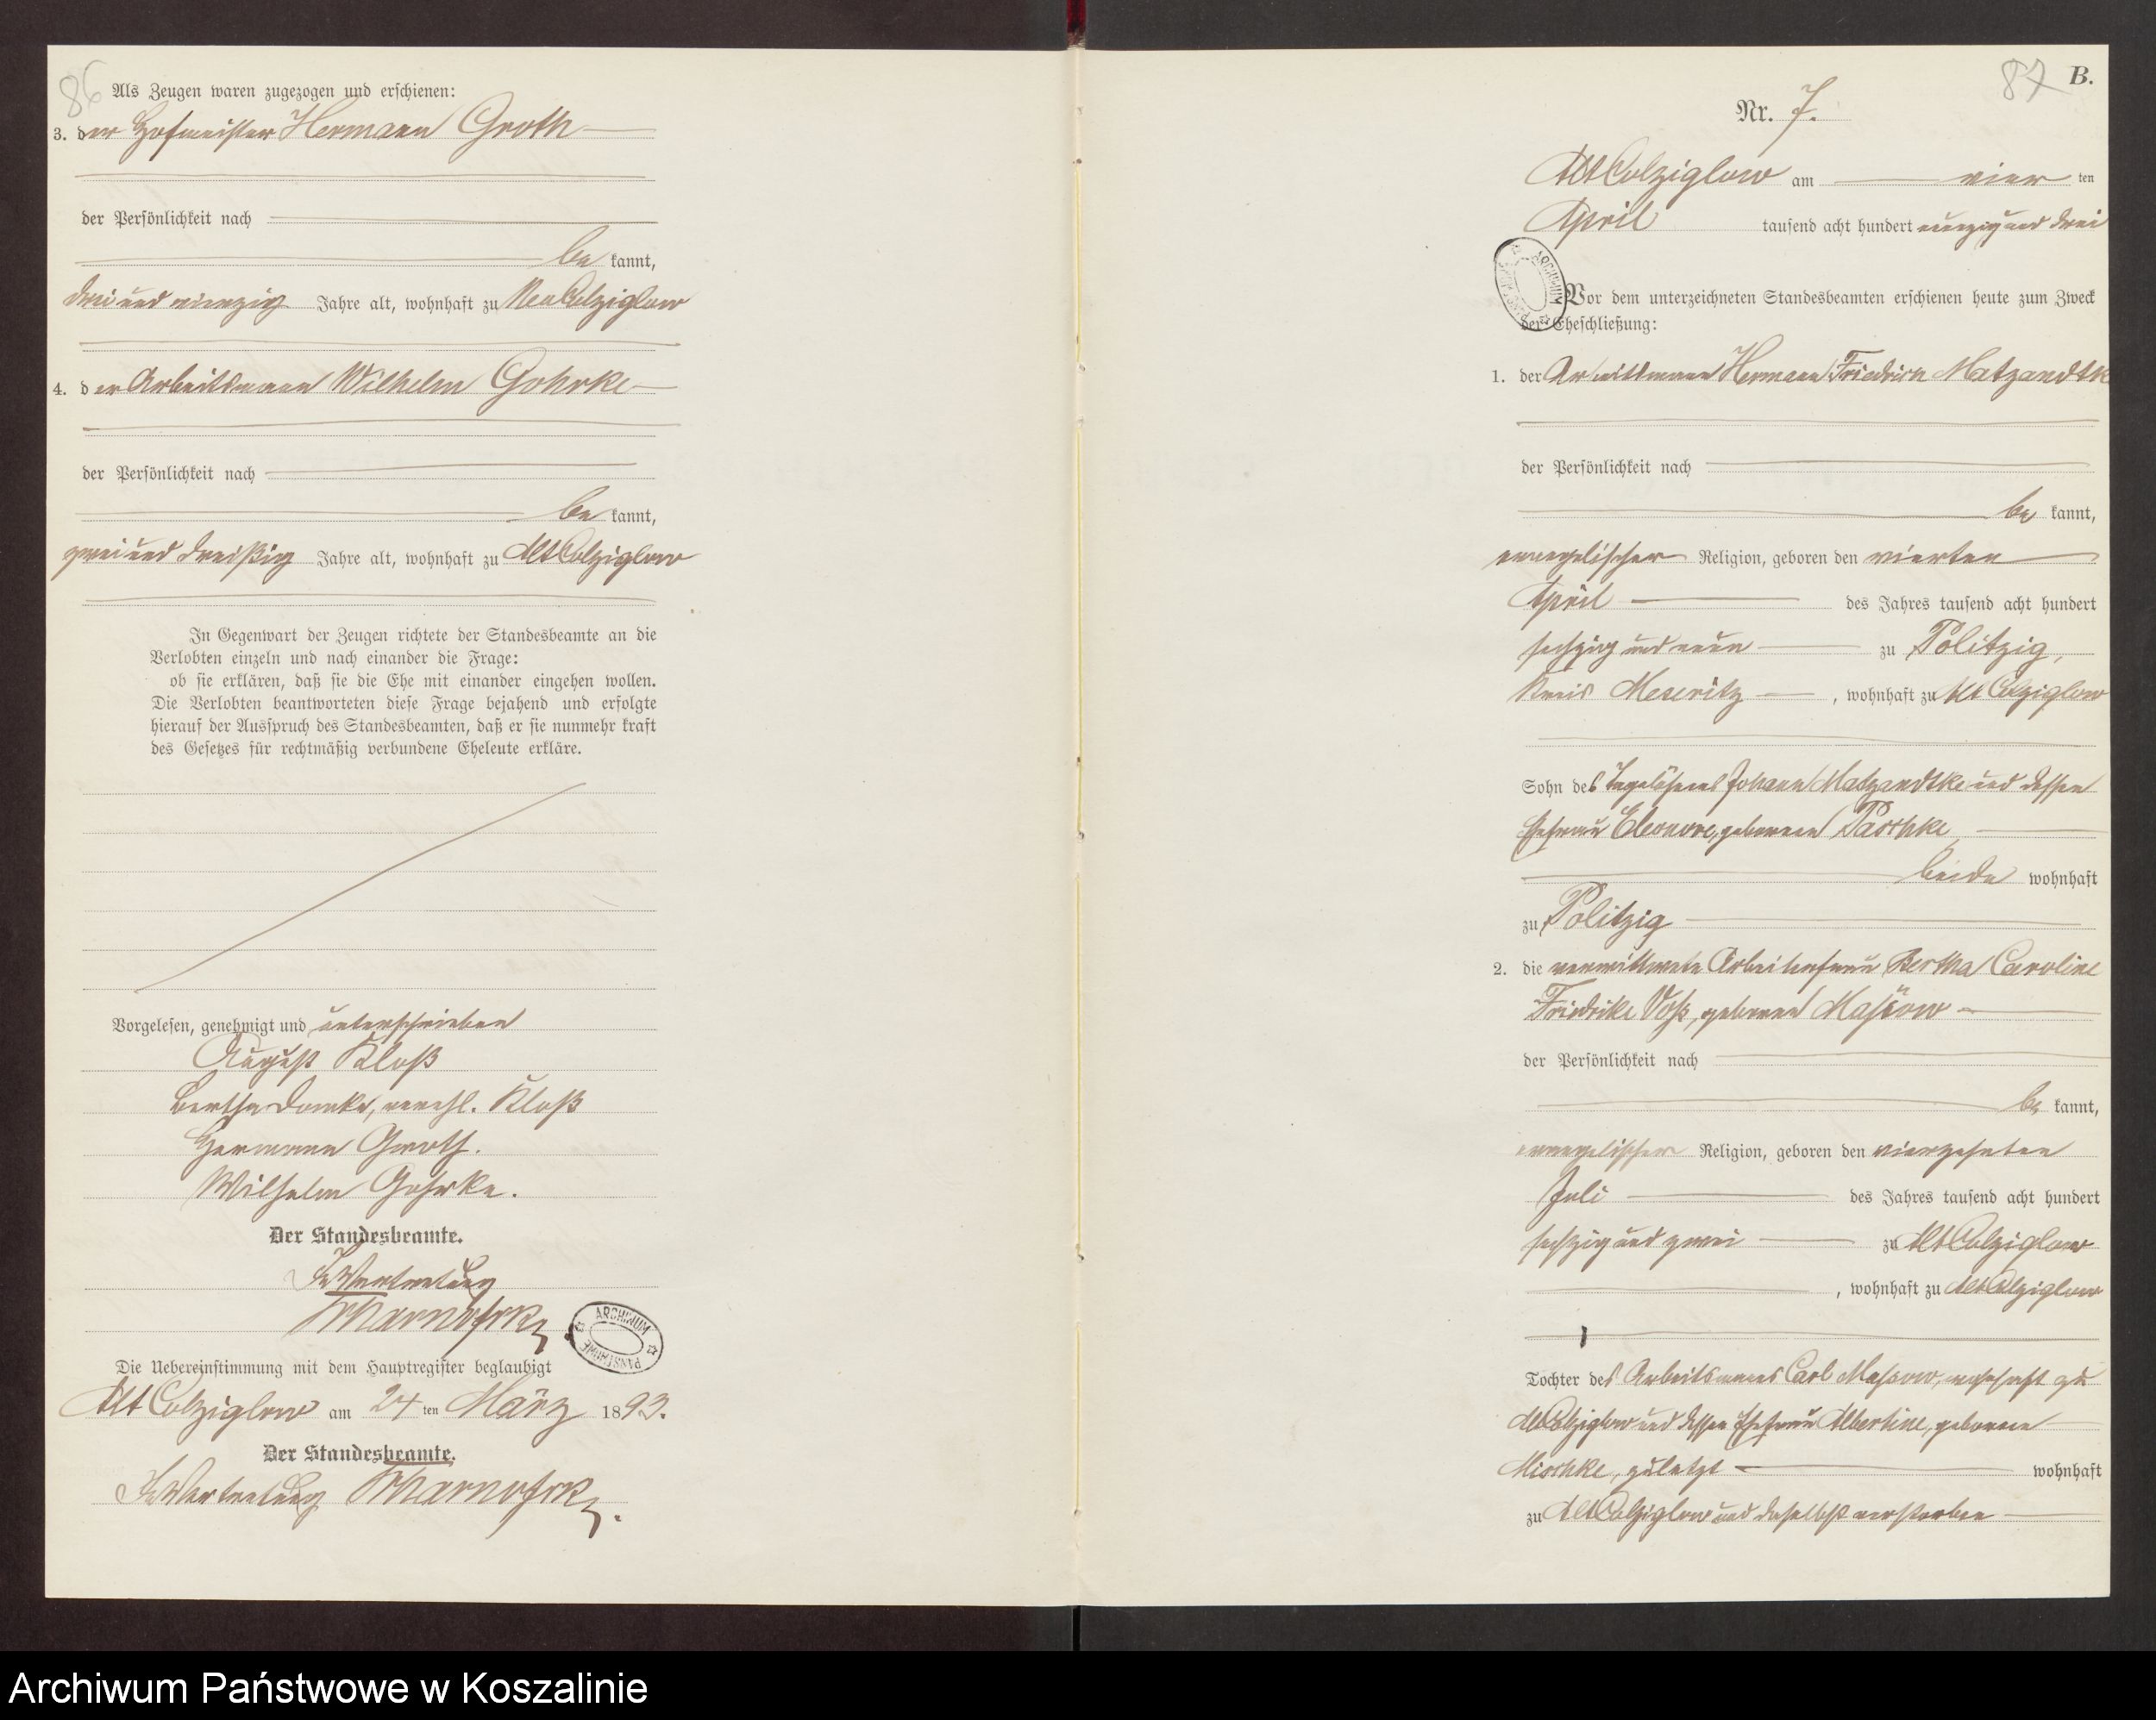 86
Als Zeugen waren zugezogen und erschienen:
3. der Hofmeister Hermann Groth
der Persönlichkeit nach
be kannt,
drei und vierzig Jahre alt, wohnhaft zu Neu Colziglow
4. der Arbeitsmann Wilhelm Gohrke
der Persönlichkeit nach
be kannt,
zwei und dreißig Jahre alt, wohnhaft zu Alt Colziglow
In Gegenwart der Zeugen richtete der Standesbeamte an die
Verlobten einzeln und nach einander die Frage:
ob sie erklären, daß sie die Ehe mit einander eingehen wollen.
Die Verlobten beantworteten diese Frage bejahend und erfolgte
hierauf der Ausspruch des Standesbeamten, daß er sie nunmehr kraft
des Gesetzes für rechtmäßig verbundene Eheleute erkläre.
Vorgelesen, genehmigt und unterschrieben
August Kloß
Bertha Domke, verehl. Kloß
Hermann Groth.
Wilhelm Gohrke.
Der Standesbeamte.
In Vertretung
ARCHIWUM PAŃSTWOWE
Die Uebereinstimmung mit dem Hauptregister beglaubigt
Alt Colziglow am 24 ten März 1893.
Der Standesbeamte.
In Vertretung
87 B.
Nr. 7.
Alt Colziglow am vier ten
April tausend acht hundert neunzig und drei
ARCHIWUM PAŃSTWOWE
Vor dem unterzeichneten Standesbeamten erschienen heute zum Zweck
der Eheschließung:
1. der Arbeitsmann Hermann Friedrich Matzandtke
der Persönlichkeit nach
be kannt,
evangelischer Religion, geboren den vierten
April des Jahres tausend acht hundert
sechzig und neun zu Politzig,
Kreis Meseritz, wohnhaft zu Alt Colziglow
Sohn des Tagelöhners Johann Matzandtke und dessen
Ehefrau Eleonore, geborenen Paschke
beide wohnhaft
zu Politzig
2. die verwittwete Arbeiterfrau Bertha Caroline
Fridrike Voß, geborene Massow
der Persönlichkeit nach
be kannt,
evangelischer Religion, geboren den vierzehnten
Juli des Jahres tausend acht hundert
sechzig und zwei zu Alt Colziglow
, wohnhaft zu Alt Colziglow
Tochter des Arbeitsmanns Carl Massow, wohnhaft zu
Alt Colziglow und dessen Ehefrau Albertine, geborenen
Mischke, zuletzt wohnhaft
zu Alt Colziglow und daselbst verstorben
Archiwum Państwowe w Koszalinie